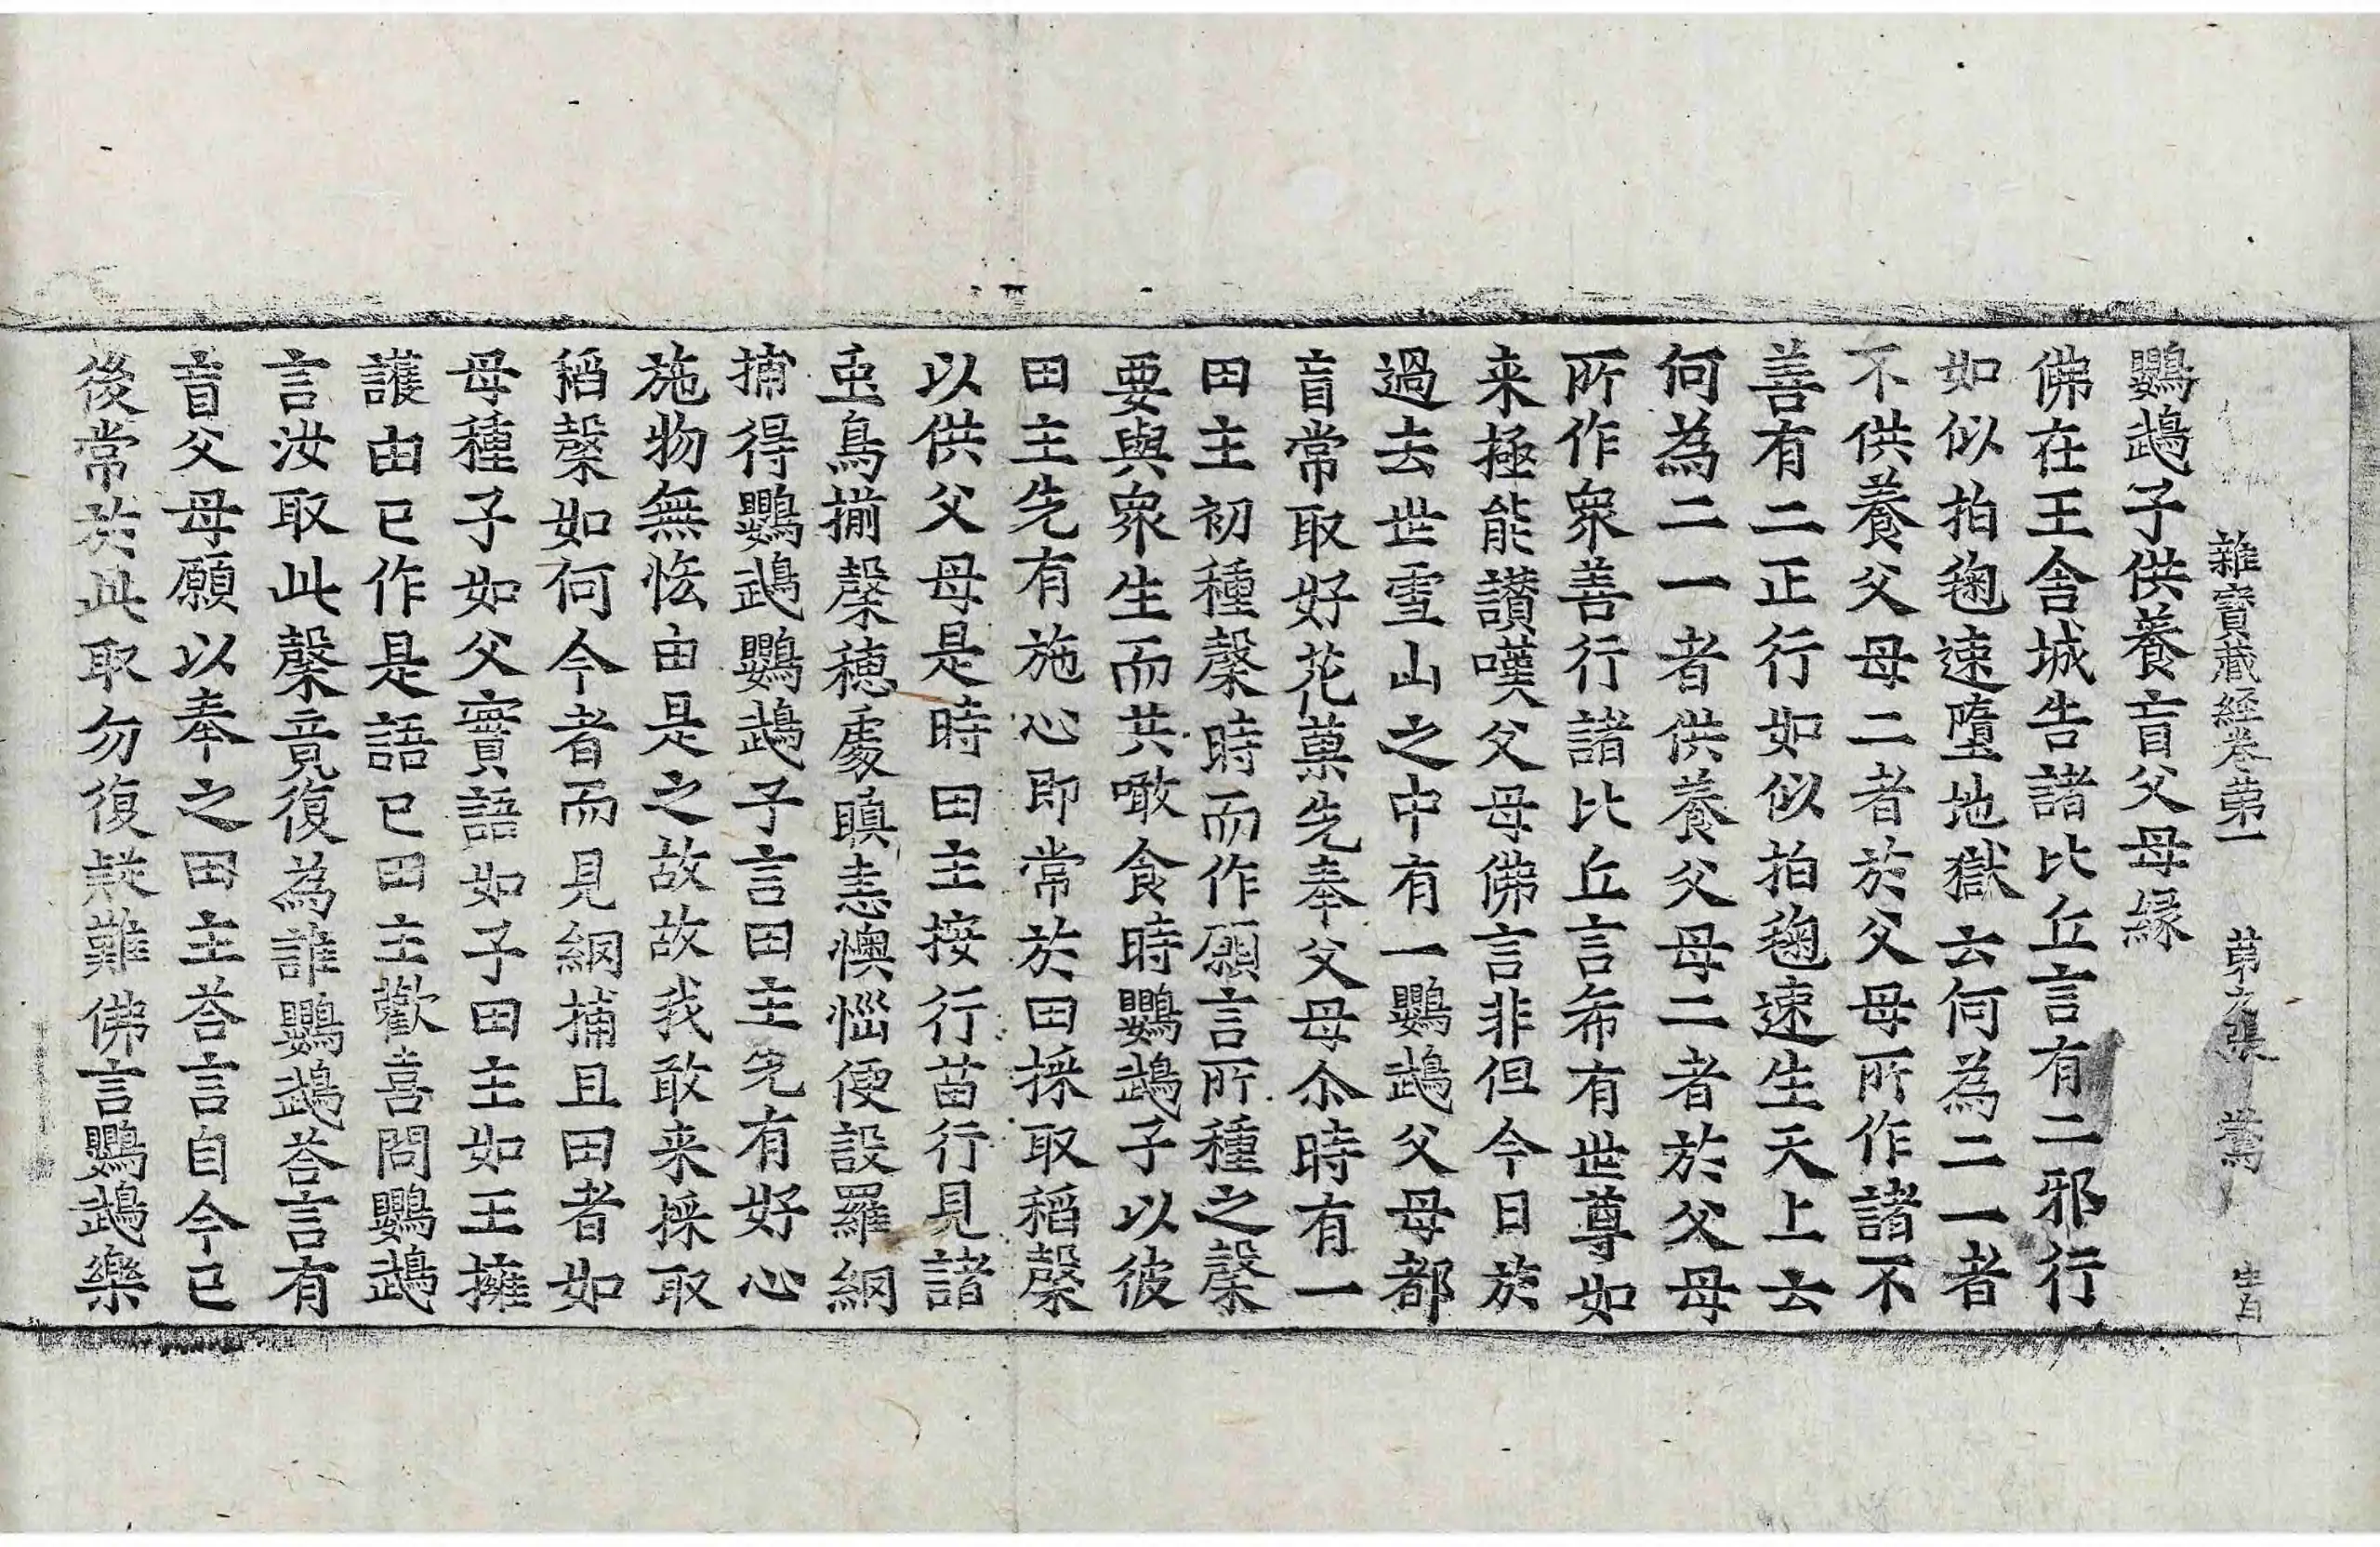 雜寶藏經卷第一 第 張
鸚鵡子供養盲父母縁
佛在王舍城告諸比丘言有二邪行
如似拍毱速墮地獄云何為二一者
不供養父母二者於父母所作諸不
善有二正行如似拍毱速生天上云
何為二一者供養父母二者於父母
所作衆善行諸比丘言希有世尊如
来極能讃嘆父母佛言非但今日於
過去世雪山之中有一鸚鵡父母都
盲常取好花菓先奉父母尒時有一
田主初種糓時而作願言所種之糓
要與衆生而共噉食時鸚鵡子以彼
田主先有施心即常於田採取稻糓
以供父母是時田主按行苗行見諸
䖝鳥揃糓穗處瞋恚懊惱便設羅網
捕得鸚鵡鸚鵡子言田主先有好心
施物無悋由是之故故我敢来採取
稻糓如何今者而見網捕且田者如
母種子如父實語如子田主如王擁
護由已作是語已田主歡喜問鸚鵡
言汝取此糓竟復為誰鸚鵡荅言有
盲父母願以奉之田主荅言自今已
後常於此取勿復疑難佛言鸚鵡樂